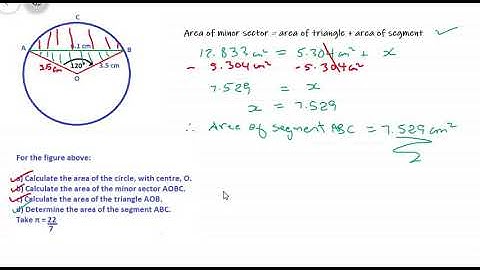 C
A
B
6.1 cm
3.5cm
120°
3.5 cm
O
For the figure above:
a) Calculate the area of the circle, with centre, O.
b) Calculate the area of the minor sector AOBC.
c) Calculate the area of the triangle AOB.
d) Determine the area of the segment ABC.
Take π = 22
7
Area of minor sector = area of triangle + area of segment
12.833 cm² = 5.304 cm² + x
- 5.304 cm² -5.304 cm²
7.529 = x
x = 7.529
∴ Area of segment ABC = 7.529 cm²